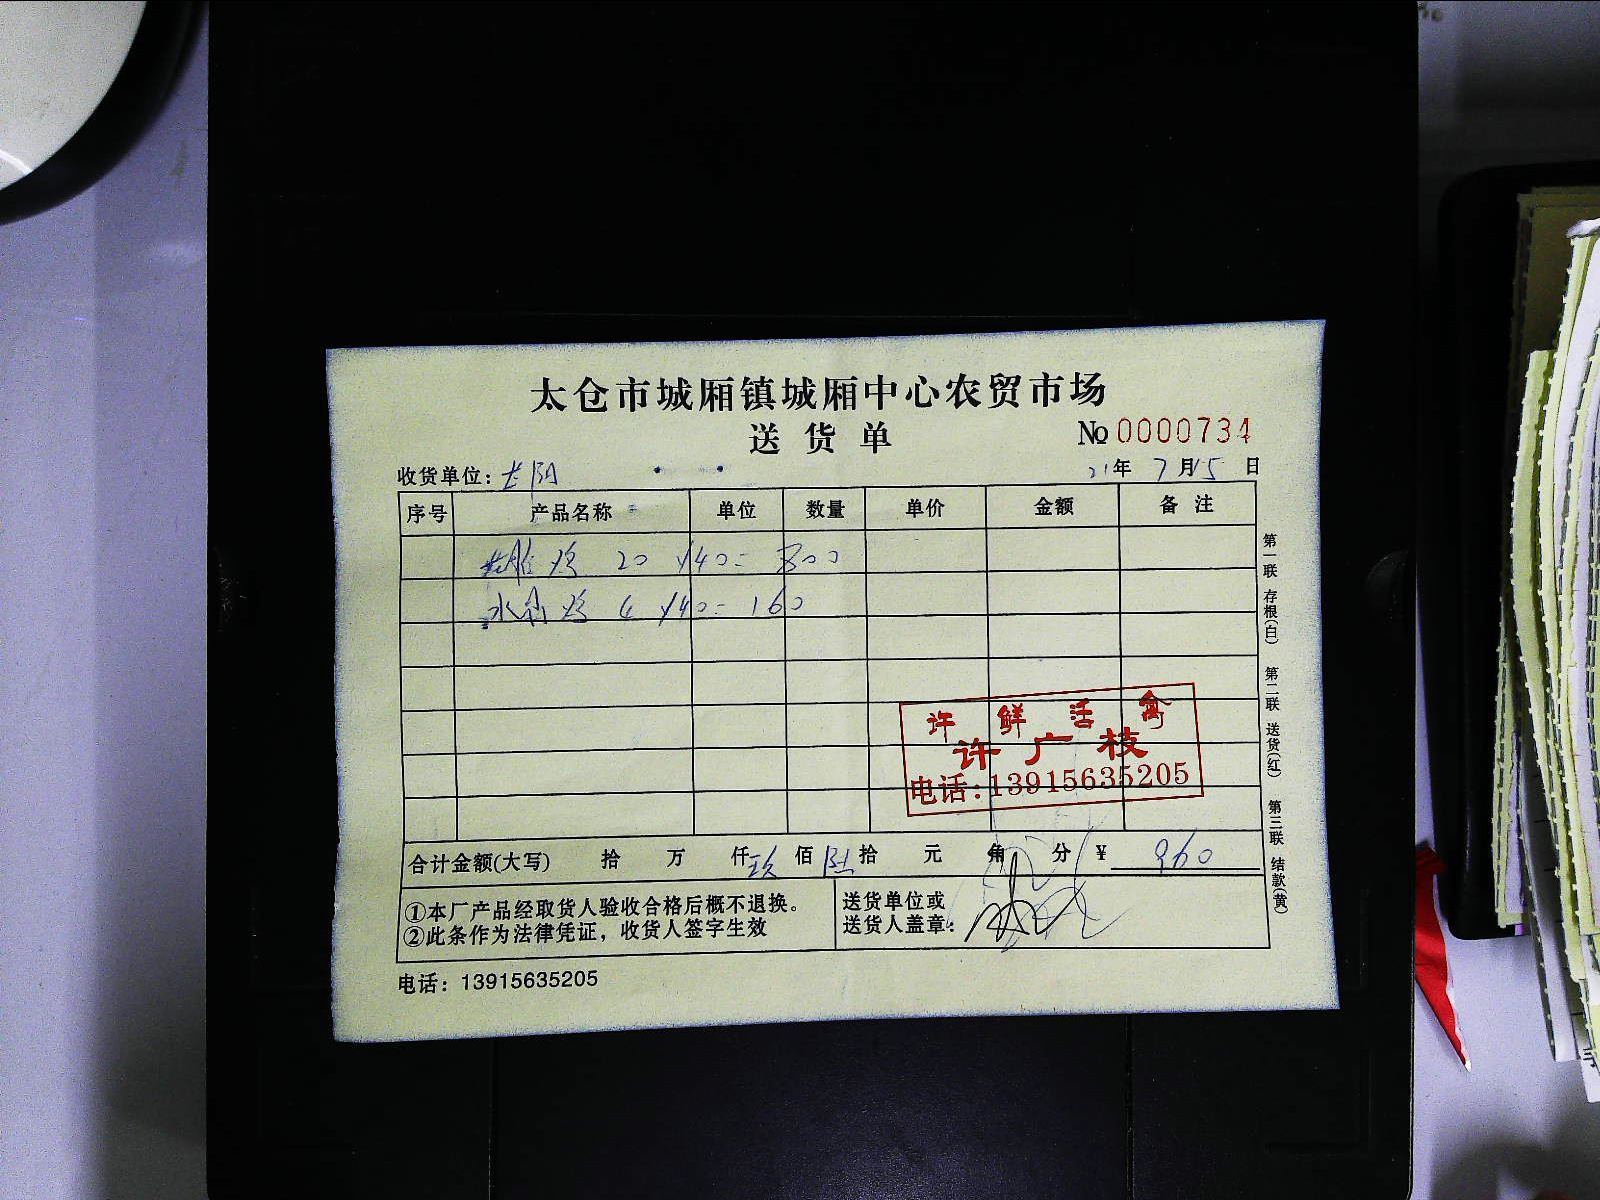 太仓市城厢镇城厢中心农贸市场
送货单
No 0000734
收货单位:
21年 7月15日
序号 产品名称 单位 数量 单价 金额 备注
20 ×40= 800
水 4 ×40= 160
许鲜活禽
许广枝
电话:13915635205
合计金额(大写) 拾 万 仟 玖 佰 陆 拾 元 角 分 ¥ 960
①本厂产品经取货人验收合格后概不退换。
②此条作为法律凭证，收货人签字生效
送货单位或
送货人盖章:
电话：13915635205
第一联 存根(白) 第二联 送货(红) 第三联 结款(黄)